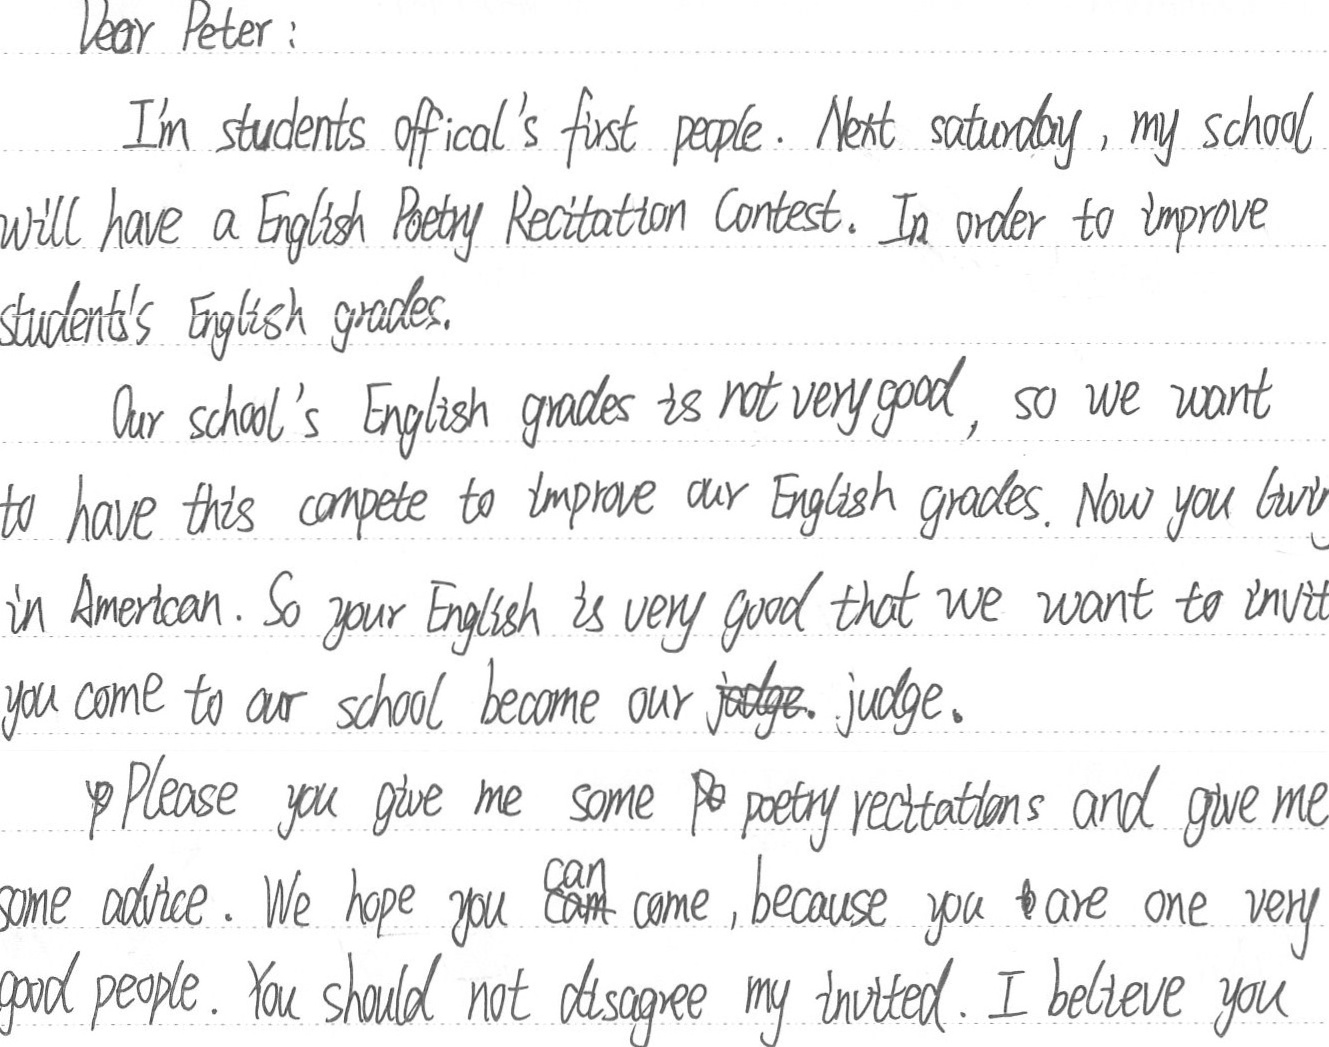 Dear Peter:
I'm students offical's first people. Next saturday, my school
will have a English Poetry Recitation Contest. In order to improve
student's English grades.
Our school's English grades is not very good, so we want
to have this compete to improve our English grades. Now you
in American. So your English is very good that we want to invit
you come to our school become our judge. judge.
Please you give me some Po poetry recitations and give me
some advice. We hope you can come, because you are one very
good people. You should not disagree my invited. I believe you